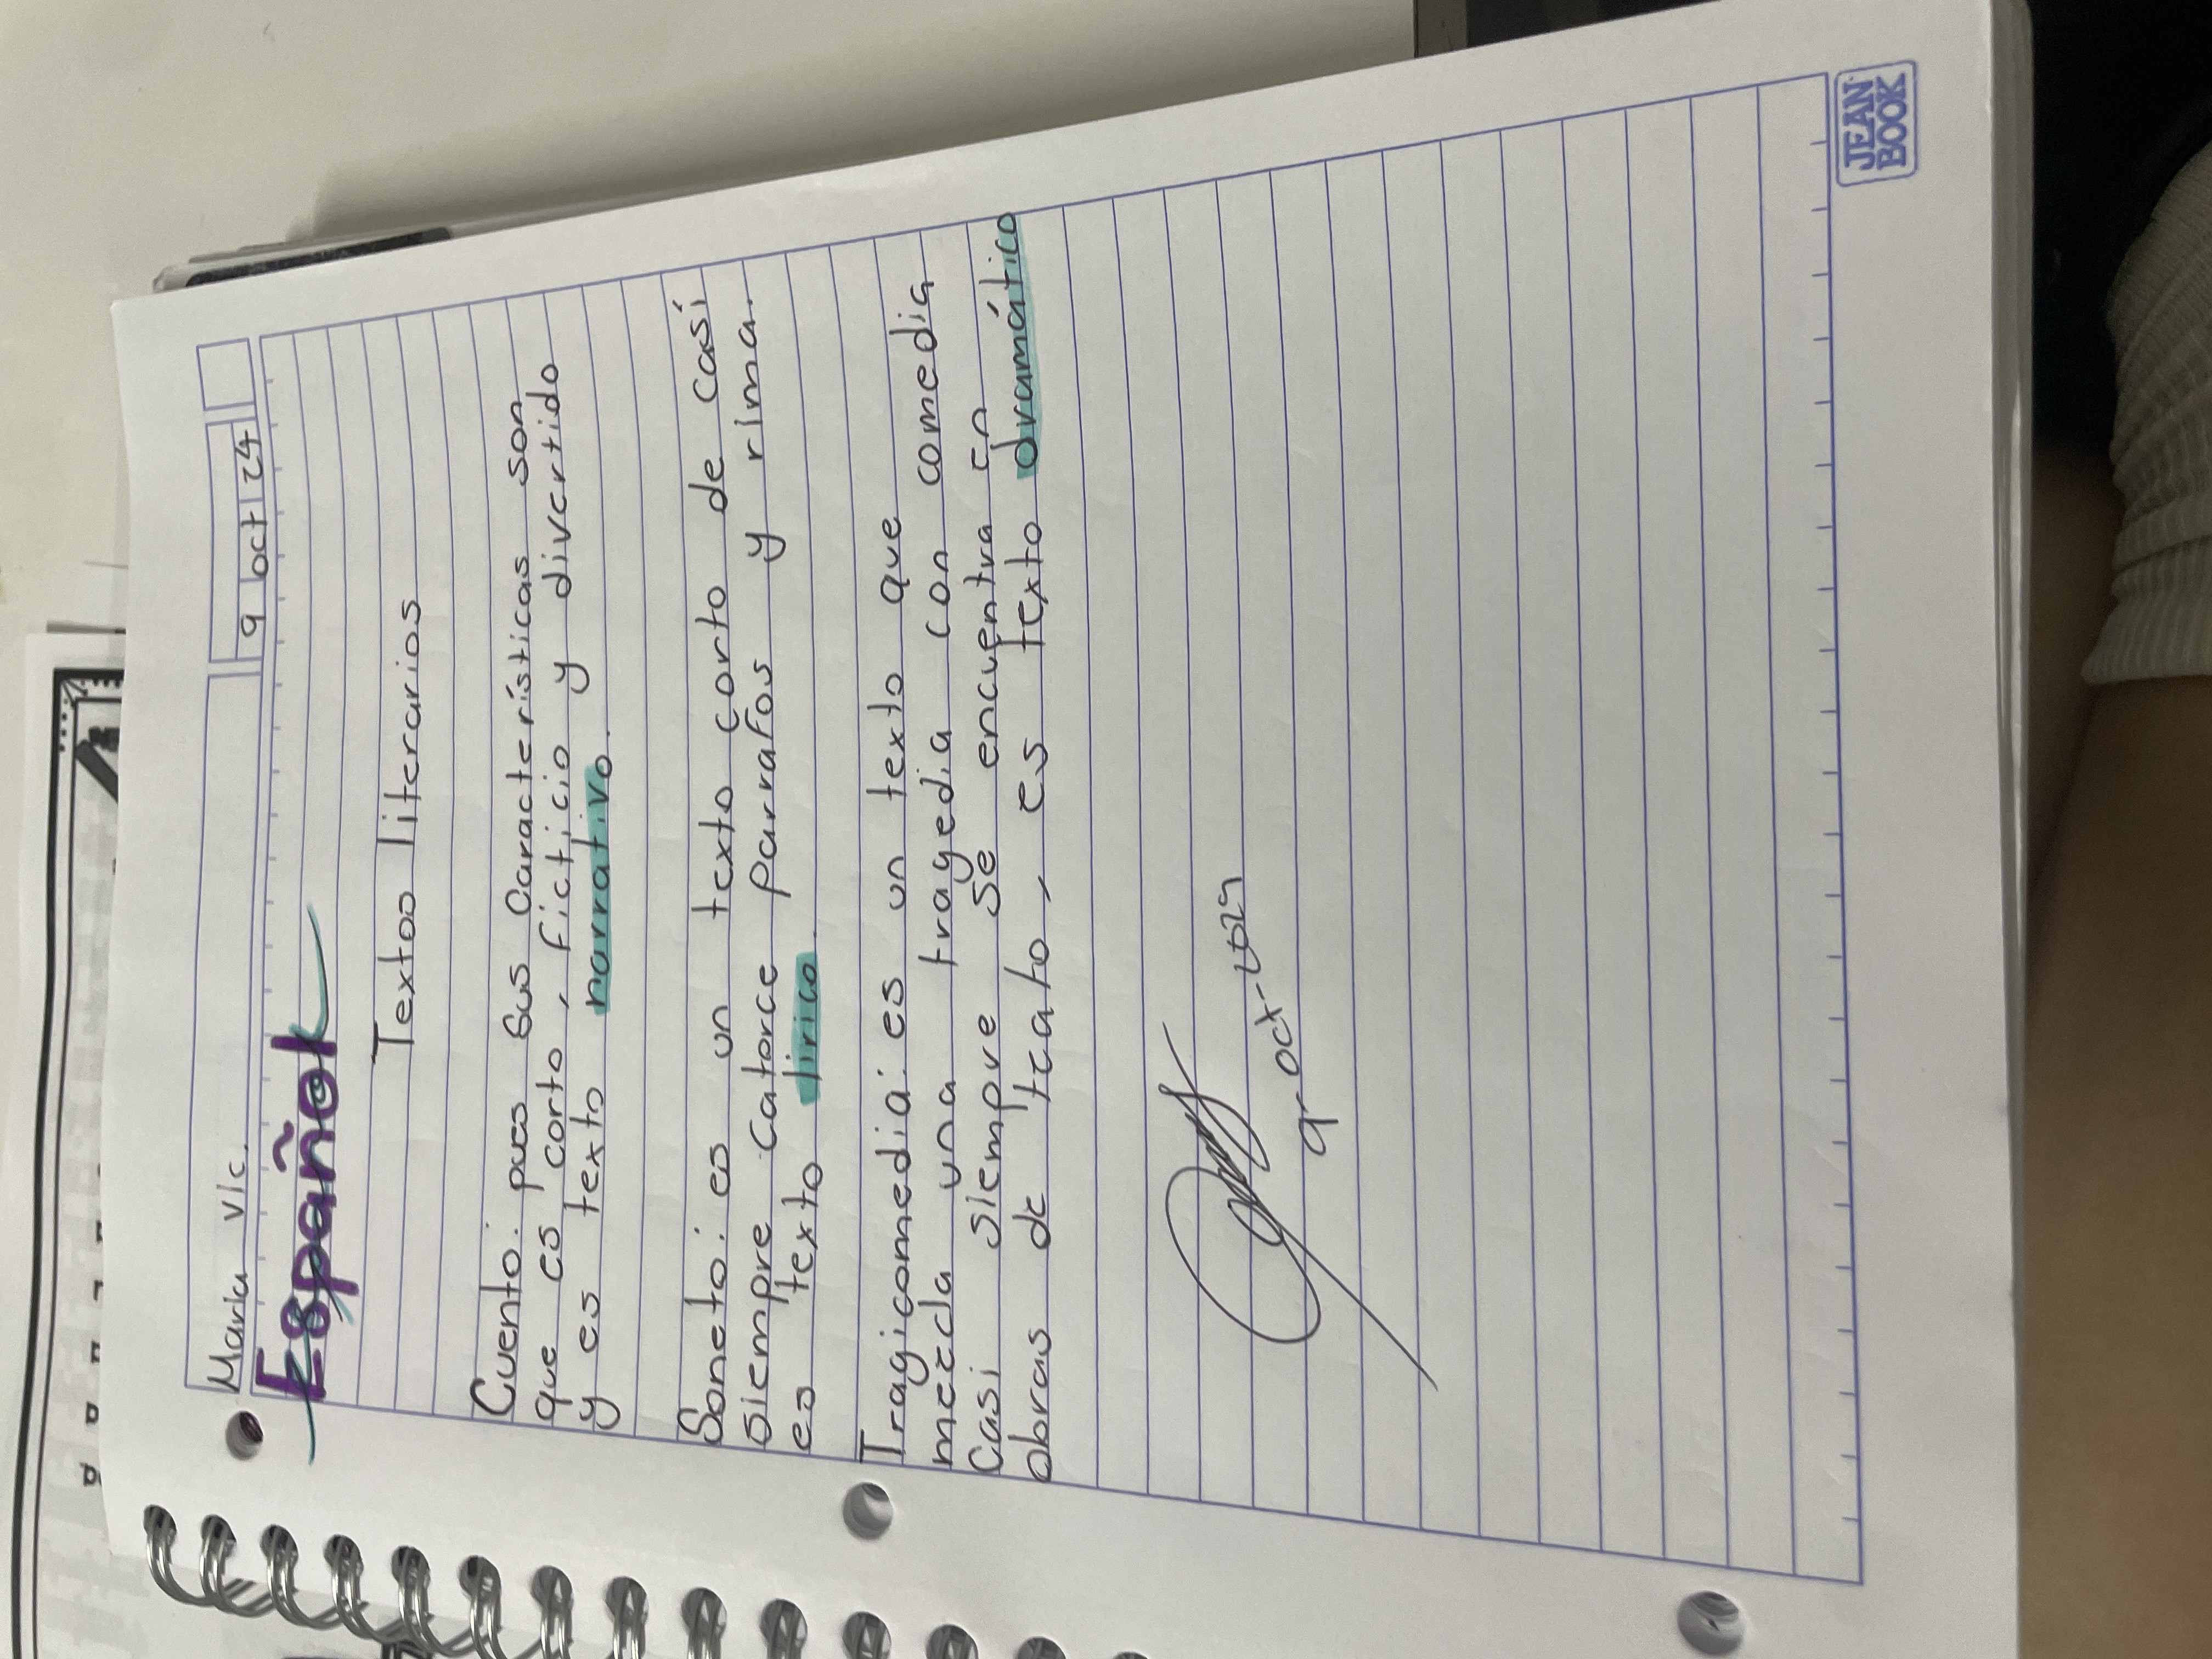 Maria Vic.
9 oct 24
Español
Textos literarios
Cuento: pues sus características son
que es corto, ficticio y divertido
y es texto narrativo.
Soneto: es un texto corto de casí
siempre catorce parrafos y rima.
es texto lirico.
Tragicomedia: es un texto que
mezcla una tragedia con comedia
Casi siempre se encuentra en
obras de teato, es texto dramático
9-oct-2024
JEAN
BOOK